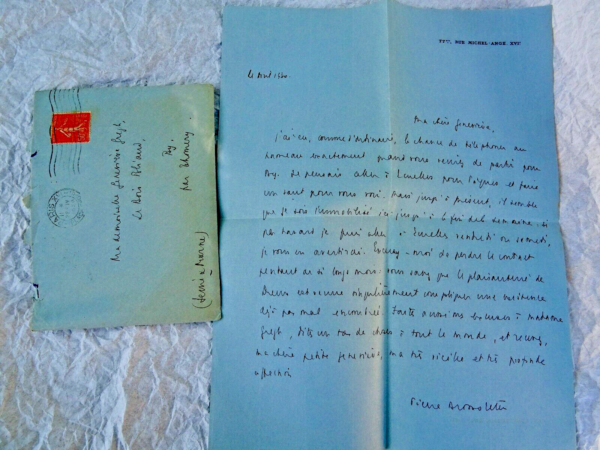 Mademoiselle Geneviève Gregh,
Le Bois Bléau,
By,
par Thomery.
(Seine & Marne)
XVII, RUE MICHEL-ANGE XVIe
Août 1930.
Ma chère Geneviève,
J'ai eu, comme d'ordinaire, la chance de téléphoner au
hameau exactement quand vous veniez de partir pour
By. Je pensais aller à pour Pâques et faire
un saut pour vous voir. Mais jusqu'à présent, il semble
que je sois immobilisé ici jusqu'à la fin de la semaine. Si
par hasard je puis aller à vendredi ou samedi,
je vous en avertirai. Excusez-moi de perdre le contact
pendant de si longs mois : vous savez que la de
Dreux est venue singulièrement compliquer une existence
déjà pas mal encombrée. Faites aussi mes excuses à madame
Gregh, dites un tas de choses à tout le monde, et recevez,
ma chère petite Geneviève, ma très vieille et très profonde
affection
Pierre Brossolette